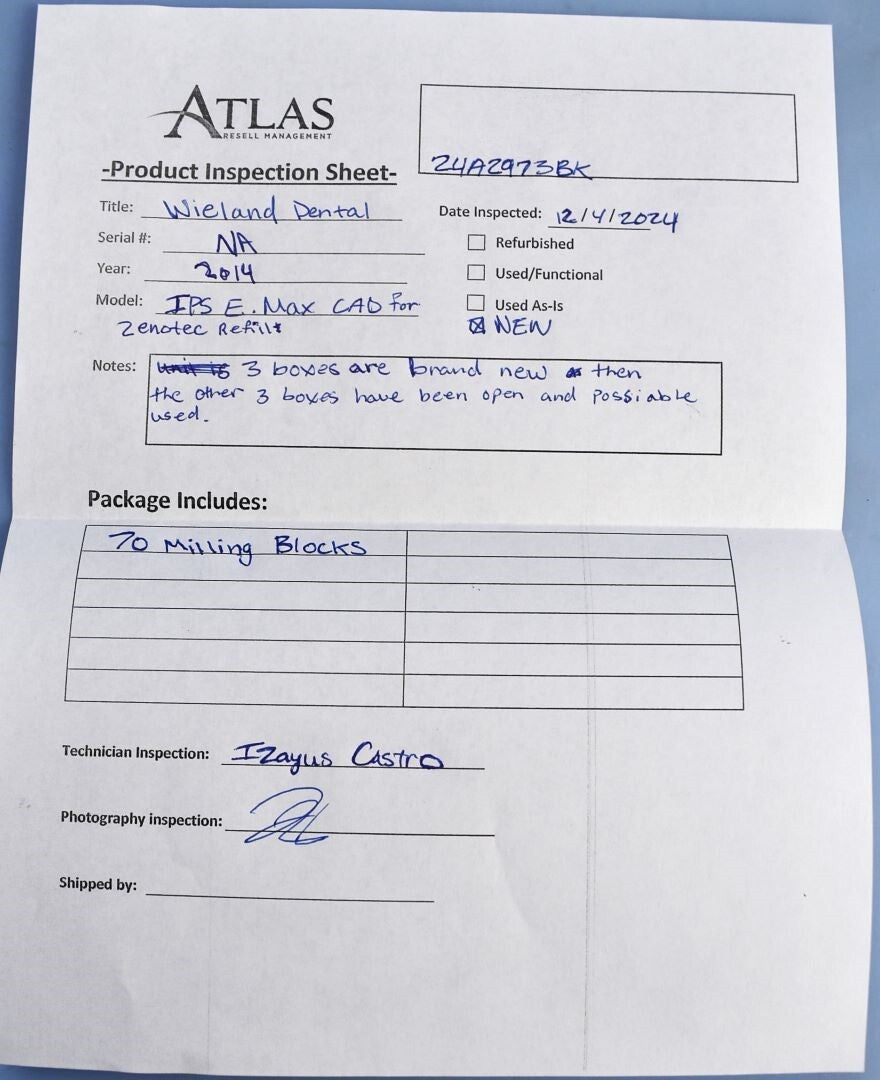 ATLAS
RESELL MANAGEMENT
24A2973BK
-Product Inspection Sheet-
Title: Wieland Dental
Date Inspected: 12/4/2024
Serial #: NA
Refurbished
Year: 2014
Used/Functional
Model: IPS E.Max CAD for
Used As-Is
Zenotec Refills
NEW
Notes: 3 boxes are brand new then
the other 3 boxes have been open and possiable
used.
Package Includes:
70 Milling Blocks
Technician Inspection: Izayus Castro
Photography inspection:
Shipped by: